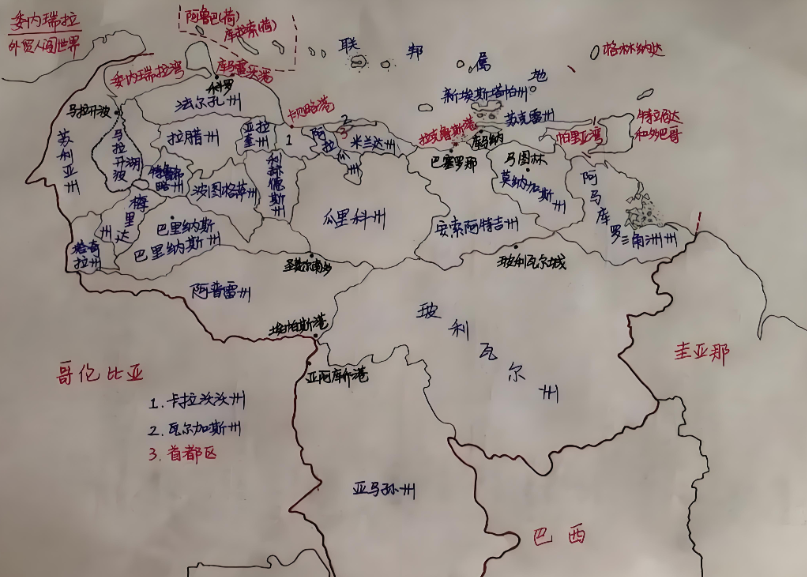 委内瑞拉
外贸人阅世界
阿鲁巴(荷)
库拉索(荷)
联邦属地
格林纳达
委内瑞拉湾
科罗
马拉开波
法尔孔州
卡贝略港
新埃斯塔帕州
苏克雷州
特立尼达
和多巴哥
苏利亚州
马拉开波湖
拉腊州
亚拉奎州
1
2
3
阿拉瓜州
米兰达州
拉克鲁斯港
库马纳
帕里亚湾
巴塞罗那
马图林
特鲁希略州
波图格萨州
科赫德斯州
瓜里科州
莫纳加斯州
阿马库罗三角洲州
梅里达州
巴里纳斯
巴里纳斯州
安索阿特吉州
塔奇拉州
阿普雷州
玻利瓦尔城
埃帕斯港
玻利瓦尔州
圭亚那
哥伦比亚
1.卡拉沃沃州
2.瓦尔加斯州
3.首都区
亚马孙州
巴西